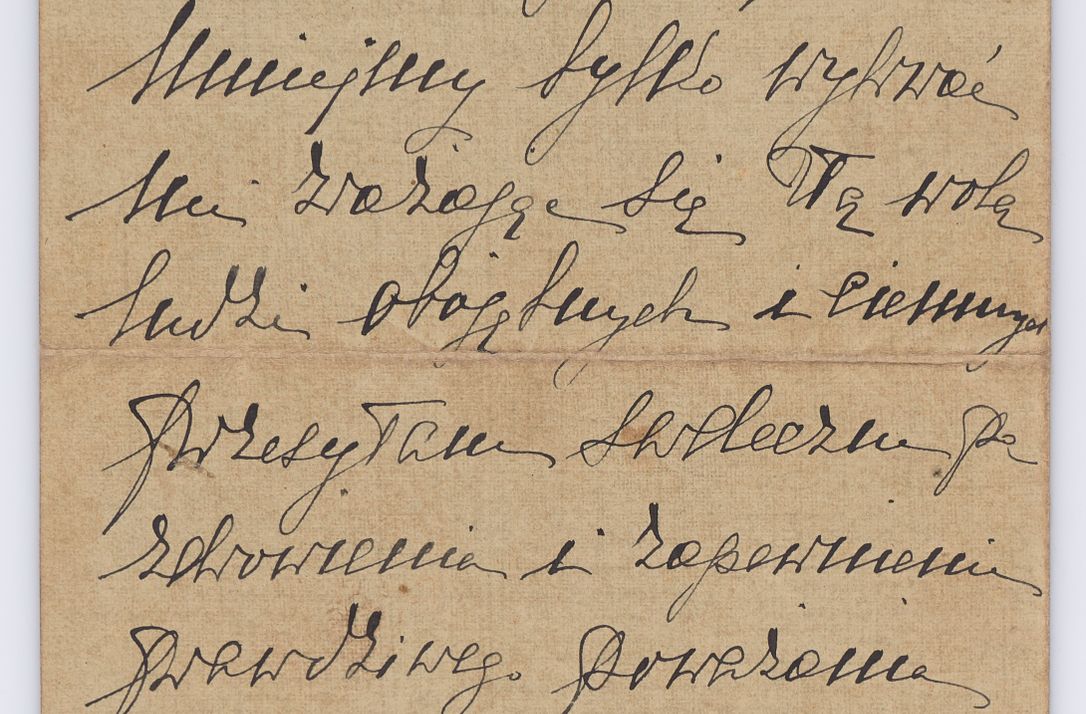 Umiejmy tylko wytrwać
nie zrażając się złą wolą
ludzi obojętnych i ciemnych
Przesyłam serdeczne po
zdrowienia i zapewnienie
prawdziwego poważania